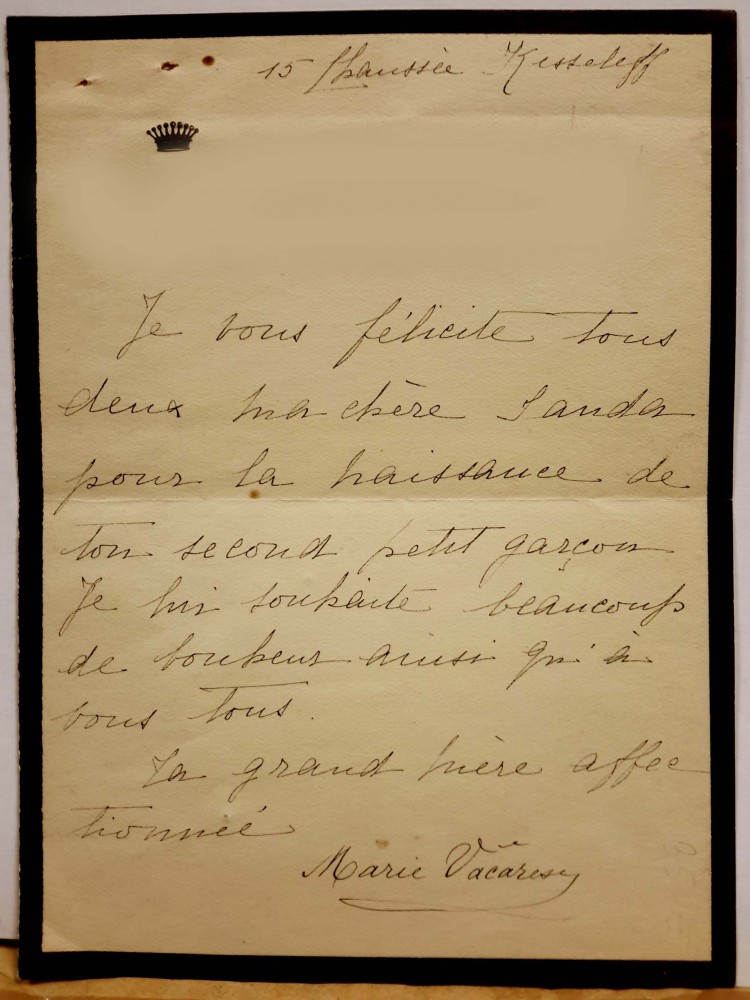 15 Chaussée Kisseleff
Je vous félicite tous
deux ma chère Sanda
pour la naissance de
ton second petit garçon
Je lui souhaite beaucoup
de bonheur ainsi qu'à
vous tous.
Ta grand mère affec
tionnée
Marie Văcărescu